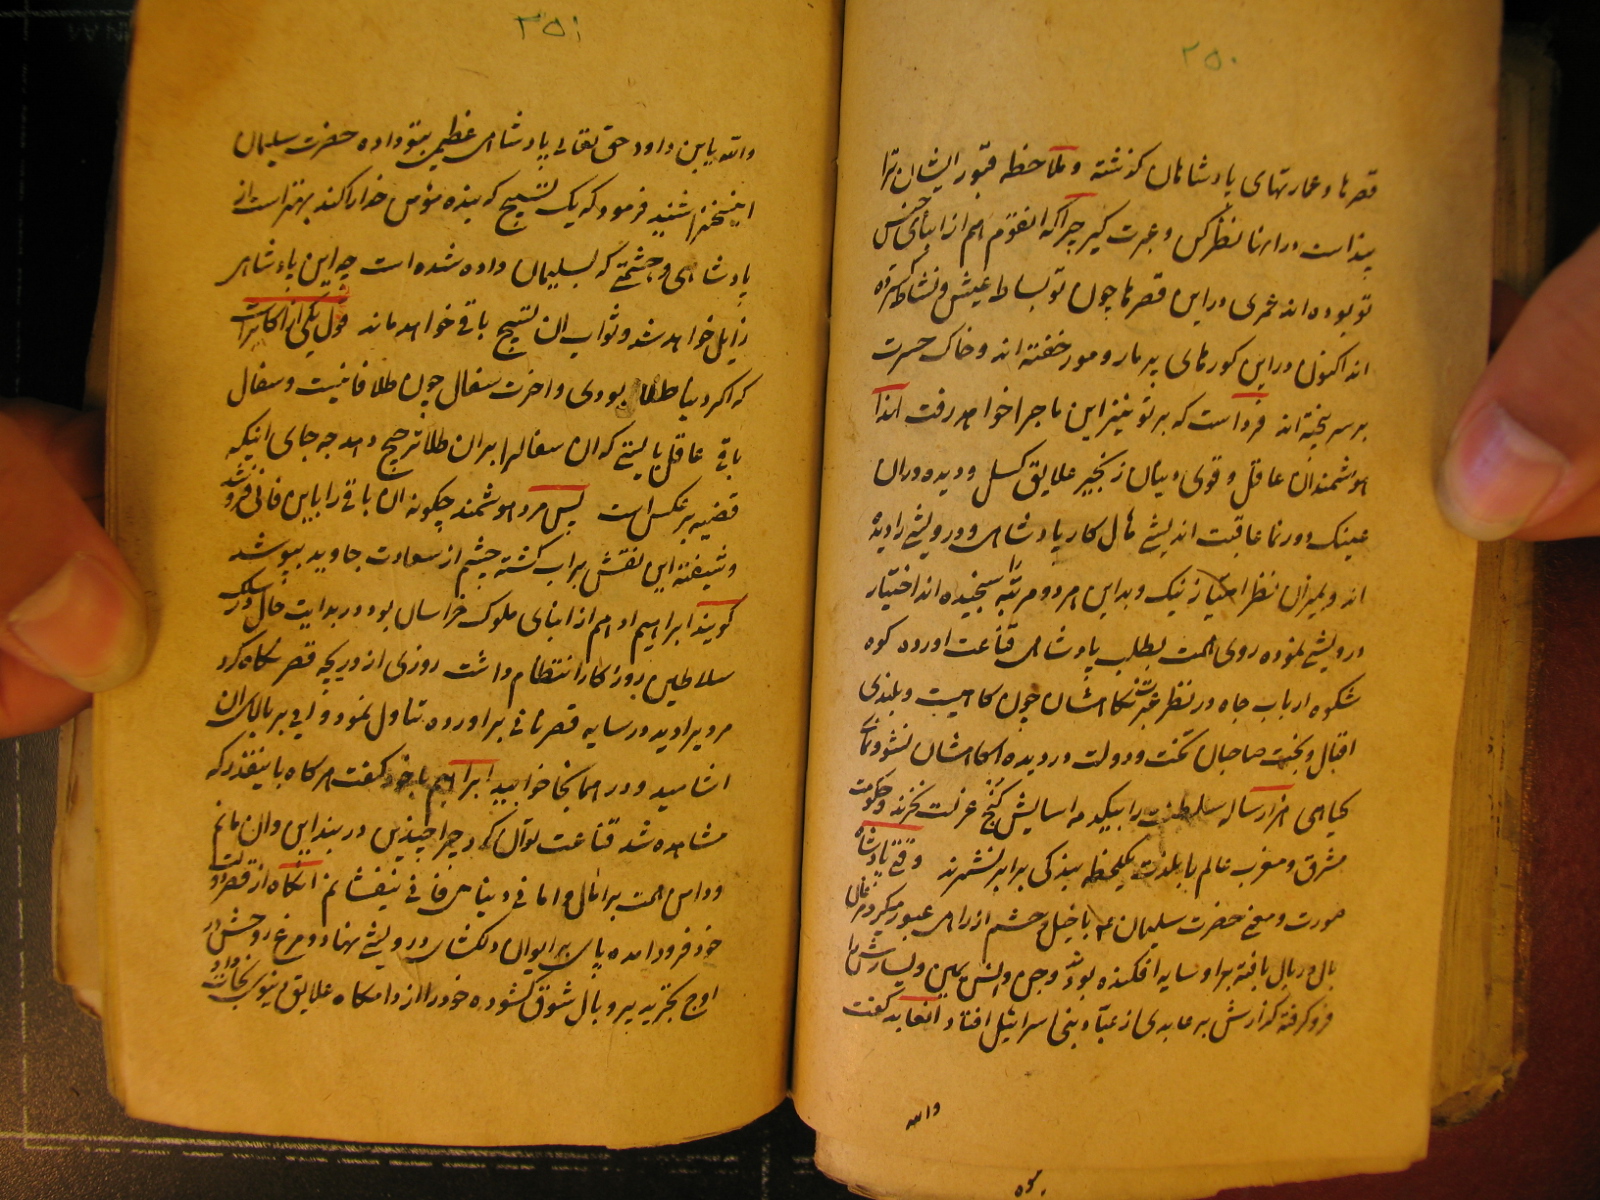 ۲۵۰
قصرها و عمارتهای پادشاهان کذشته و ملاحظه قبور ایشان ترا
پنداست در انها نظر کن و عبرت کیر چرا که انقوم هم از ابنای جنس
تو بوده اند عمری در این قصرها چون تو بساط عیش و نشاط کسترده
اند اکنون در این کورهای پر مار و مور خفته اند و خاک حسرت
بر سر بیخته اند فرداست که بر تو نیز این ماجرا خواهد رفت لهذا
هوشمندان عاقل و قوی دینان زنجیر علایق کسل و دیده وران
عینک دور نما عاقبت اندیشی مال کار پادشاهی و درویشی را دیده
اند و بمیزان نظر امتیاز نیک و بد این هر دو مرتبه را سنجیده اند اختیار
درویشی نموده روی همت بطلب پادشاهی قناعت اورده کوه
شکوه ارباب جاه در نظر عبرت نکاهشان چون کاهیست و بلندی
اقبال و بخت صاحبان تخت و دولت در دیده اکاهشان نشو و نمای
کیاهی هزار ساله سلطنت را بیکدم اسایش کنج عزلت نخرند و حکومت
مشرق و مغرب عالم با بلذت یکلحظه بندکی برابر نشمرند وقتی پادشاه
صورت و معنی حضرت سلیمان با خیل و حشم از راهی عبور میکرد مرغان
بال در بال بافته بر او سایه افکنده بودند و جن و انس یمین و یسارش را
فرو کرفته کذارش بر عابدی از عباد بنی اسرائیل افتاد انعابد کفت
والله
۲۵۱
والله یا بن داود حق تعالی پادشاهی عظیمی بتو داده حضرت سلیمان
اینسخنرا شنید فرمود که یک تسبیح که بنده مؤمن خدا را کند بهتر است از
پادشاهی و حشمتی که بسلیمان داده شده است چه این پادشاهی
زایل خواهد شد و ثواب ان تسبیح باقی خواهد ماند قول یکی از اکابر است
که اکر دنیا طلا بودی و اخرت سفال چون طلا فانیست و سفال
باقی عاقل بایستی که ان سفالرا بر ان طلا ترجیح دهد چه جای اینکه
قضیه بر عکس است پس مرد هوشمند چکونه ان باقی را باین فانی فروشد
و شیفته این نقش بر اب کشته چشم از سعادت جاوید بپوشد
کویند ابراهیم ادهم از ابنای ملوک خراسان بود در بدایت حال در سلک
سلاطین روزکار انتظام داشت روزی از دریچه قصر نکاه کرد
مرد یرا دید در سایه قصر نانی بر اورده تناول نمود و ابی بر بالای ان
اشامید و در همانجا خوابید ابراهیم با خود کفت هر کاه باینقدر که
مشاهده شد قناعت توان کرد چرا چندین در بند این و ان مانم
و دامن همت بر امال و امانی دنیای فانی نیفشانم انکاه از قصر دولت
خود فرود امده پای بر ایوان دلکشای درویشی نهاد و مرغ روحش در
اوج تجرید پر و بال شوق کشوده خود را از دامکاه علایق دنیوی نجات داد